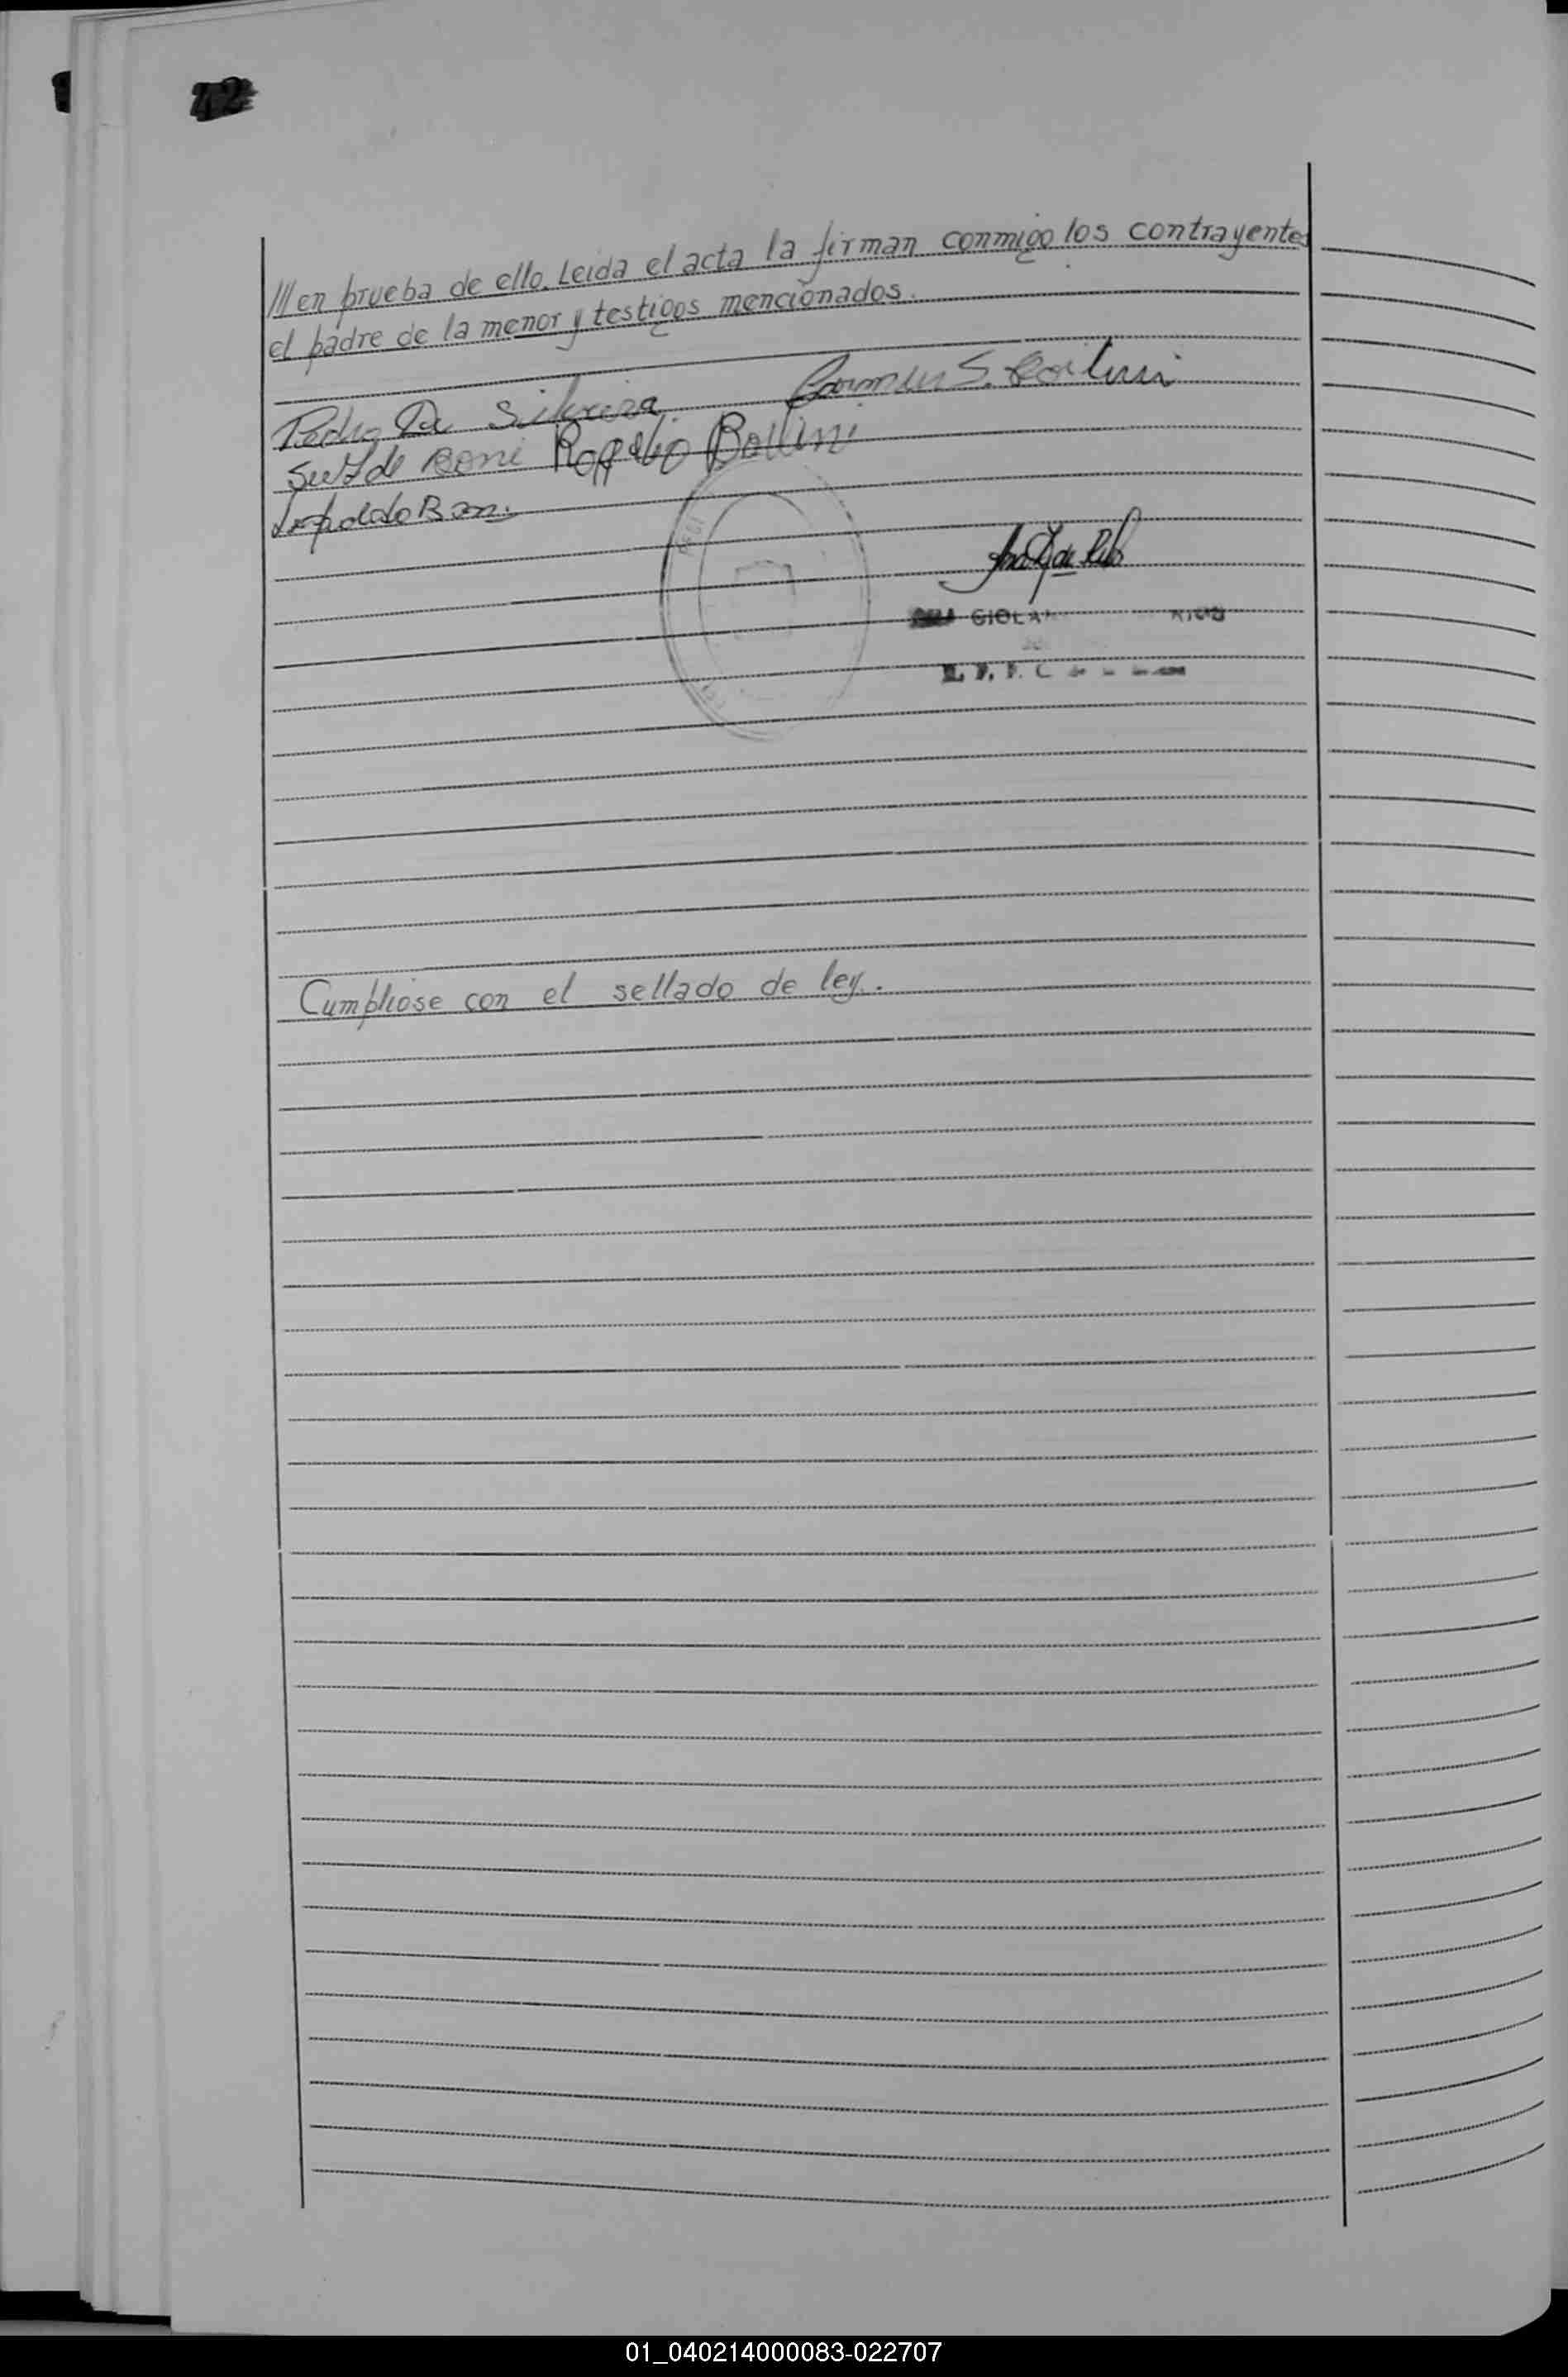 42
/// en prueba de ello. Leida el acta la firman conmigo los contrayentes
el padre de la menor y testigos mencionados.
Pedro Da Silveira Carmen S. Bollini
de Boni Rogelio Bollini
Leopoldo Boni
GIOLA RIOS
Cumpliose con el sellado de ley.
01_040214000083-022707